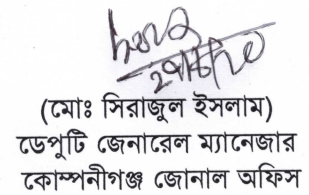 (মোঃ সিরাজুল ইসলাম)
ডেপুটি জেনারেল ম্যানেজার
কোম্পনীগঞ্জ জোনাল অফিস